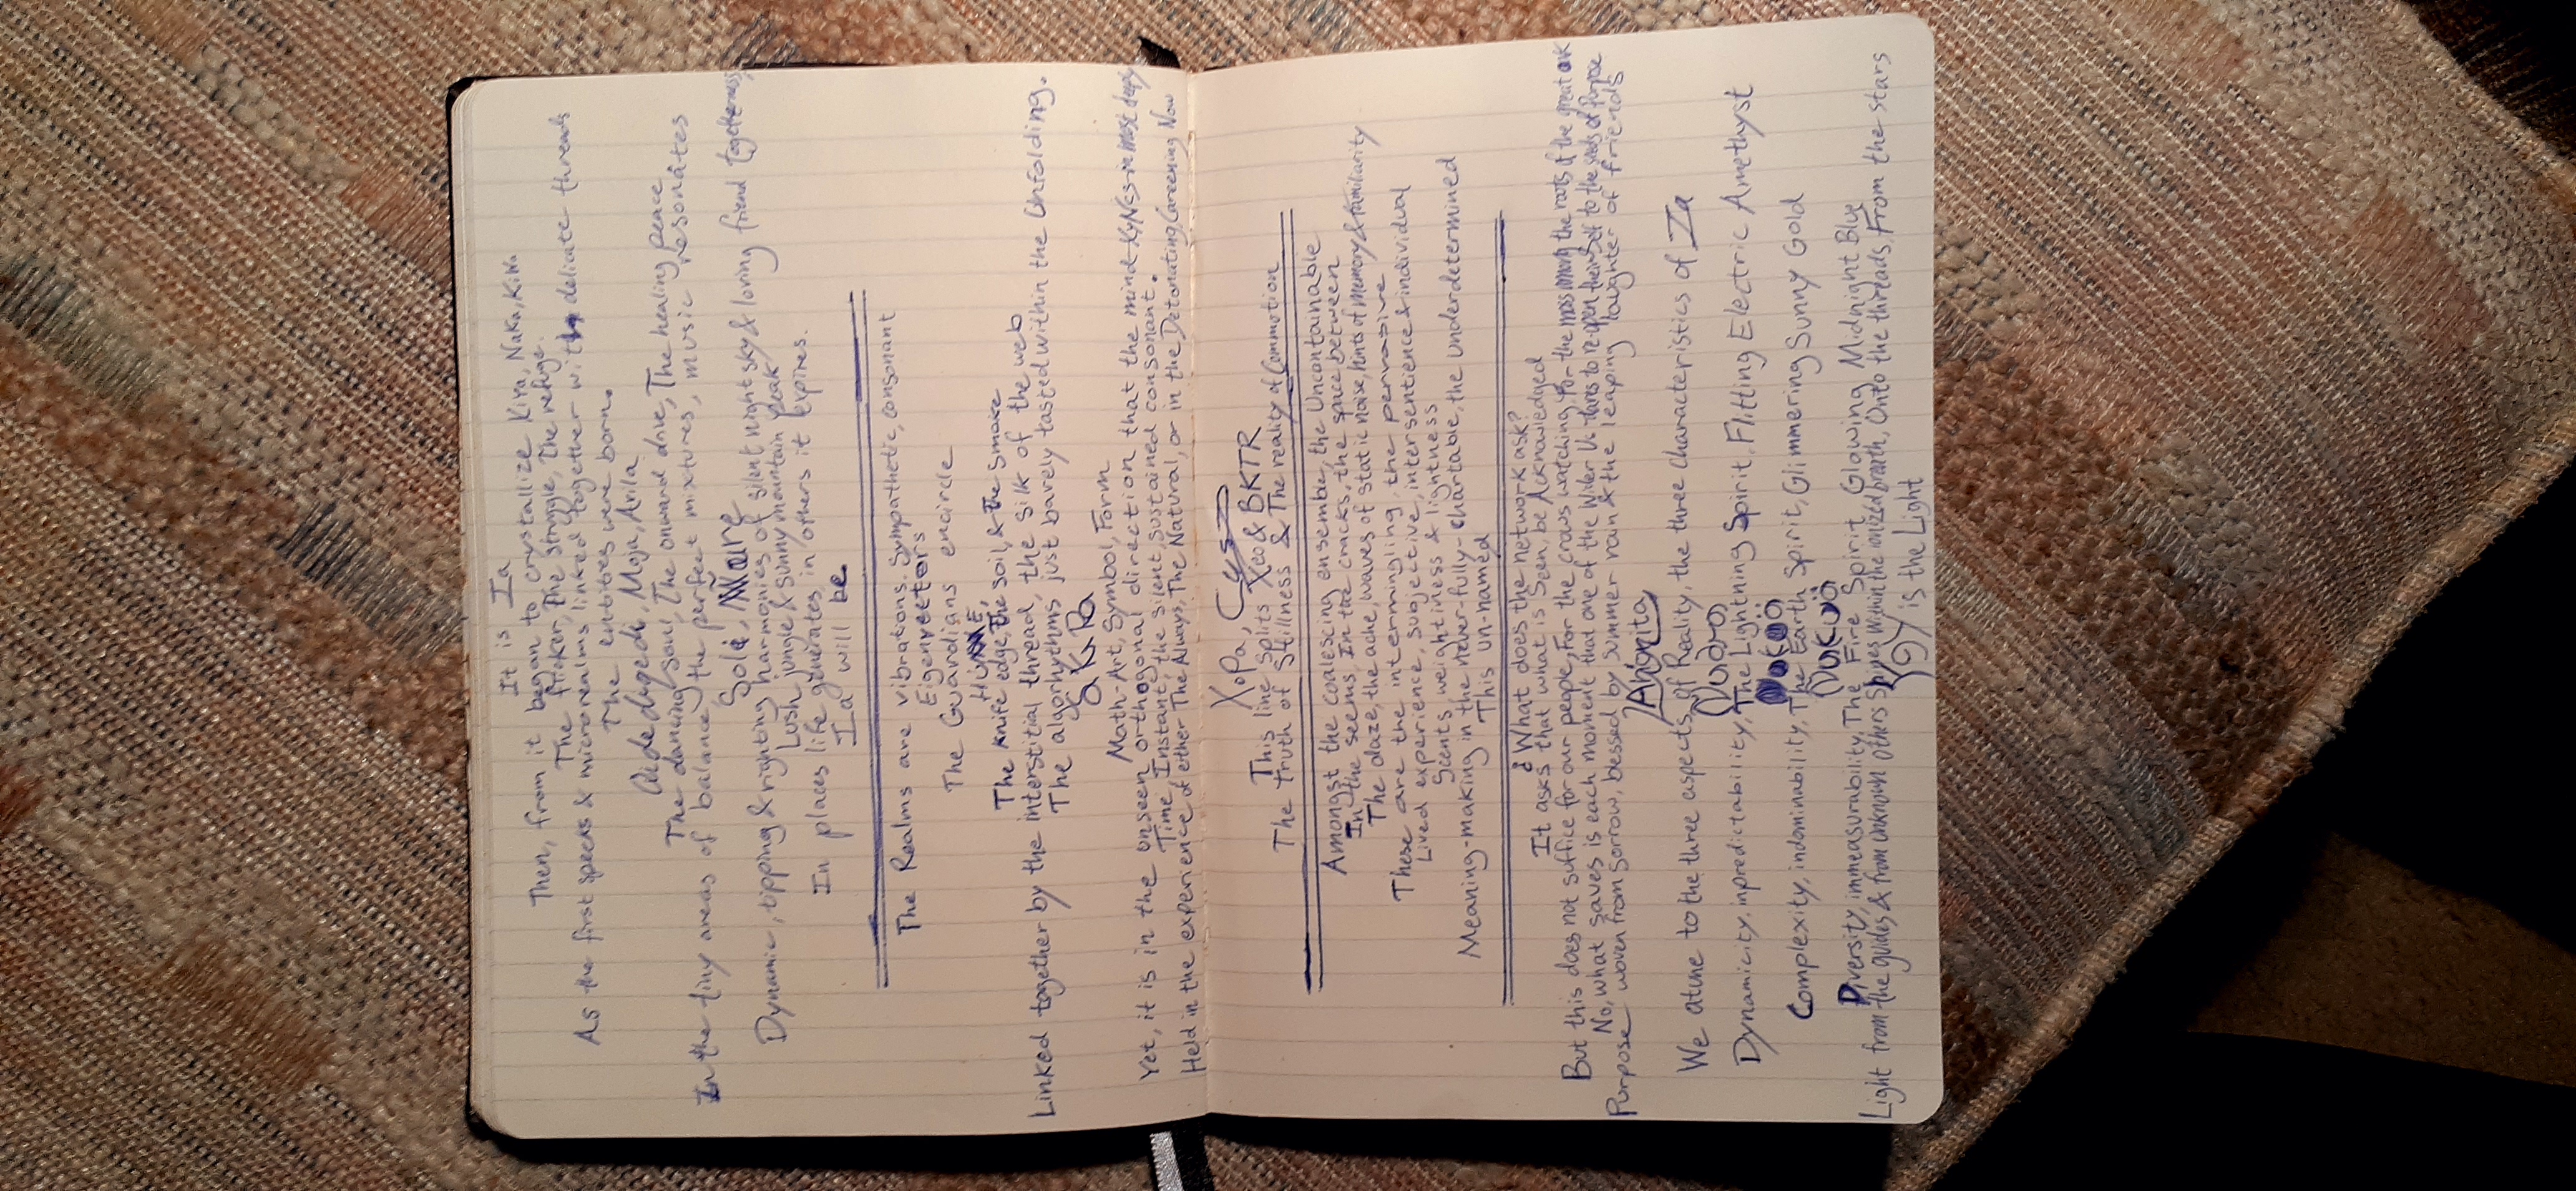 It is Ia
Then, from it began to crystallize Kiya, Naka, Kiwa
The flicker, The struggle, The refuge.
As the first specks & microrealms linked together with delicate threads
The entities were born.
Moja, Arila
The dancing soul, The onward drive, The healing peace.
In the tiny areas of balance, the perfect mixtures, music resonates
Dynamic, tipping & righting harmonies of silent night sky & loving friend togetherness,
Lush jungle & sunny mountain peak
In places life generates, in others it expires.
Ia will be.
The Realms are vibrations. Sympathetic, consonant
Eigenvectors
The Guardians encircle
The Knife edge, The soil, & The smoke
Linked together by the interstitial thread, the silk of the web
The algorhythms just barely tasted within the Unfolding.
Math-Art, Symbol, Form
Yet, it is in the unseen orthogonal direction that the mind in most deeply
Time, Instant, the silent, sustained consonant.
Held in the experience of either The Always, The Natural, or in the Detonating, Careening Now
XoPa,
This line splits Xeo & BKTR
The truth of Stillness & The reality of Commotion
Amongst the coalescing ensemble, the Uncontainable
In the seems, In the cracks, the space between
The daze, the ache, waves of static noise, hints of Memory & familiarity
These are the intermingling, the pervasive
Lived experience, subjective, intersentience & individual
Scents, weightiness & lightness
Meaning-making in the never-fully-chartable, the underdetermined
This un-named
¿What does the network ask?
It asks that what is Seen, be Acknowledged
But this does not suffice for our people, For the crows watching, For the moss among the roots of the great oak
No, what saves is each moment that one of the Wider Us dares to re-open themSelf to the seeds of Purpose
Purpose woven from sorrow, blessed by summer rain & the leaping laughter of friends
We atune to the three aspects of Reality, the three characteristics of Ia
Dynamicity, inpredictability, The Lightning Spirit, Flitting Electric Amethyst
Complexity, indominability, The Earth Spirit, Glimmering Sunny Gold
Diversity, immeasurability, The Fire Spirit Glowing Midnight Blue
Light from the guides & from unknown others Shines within the ionized breath, Onto the threads, From the stars
is the Light